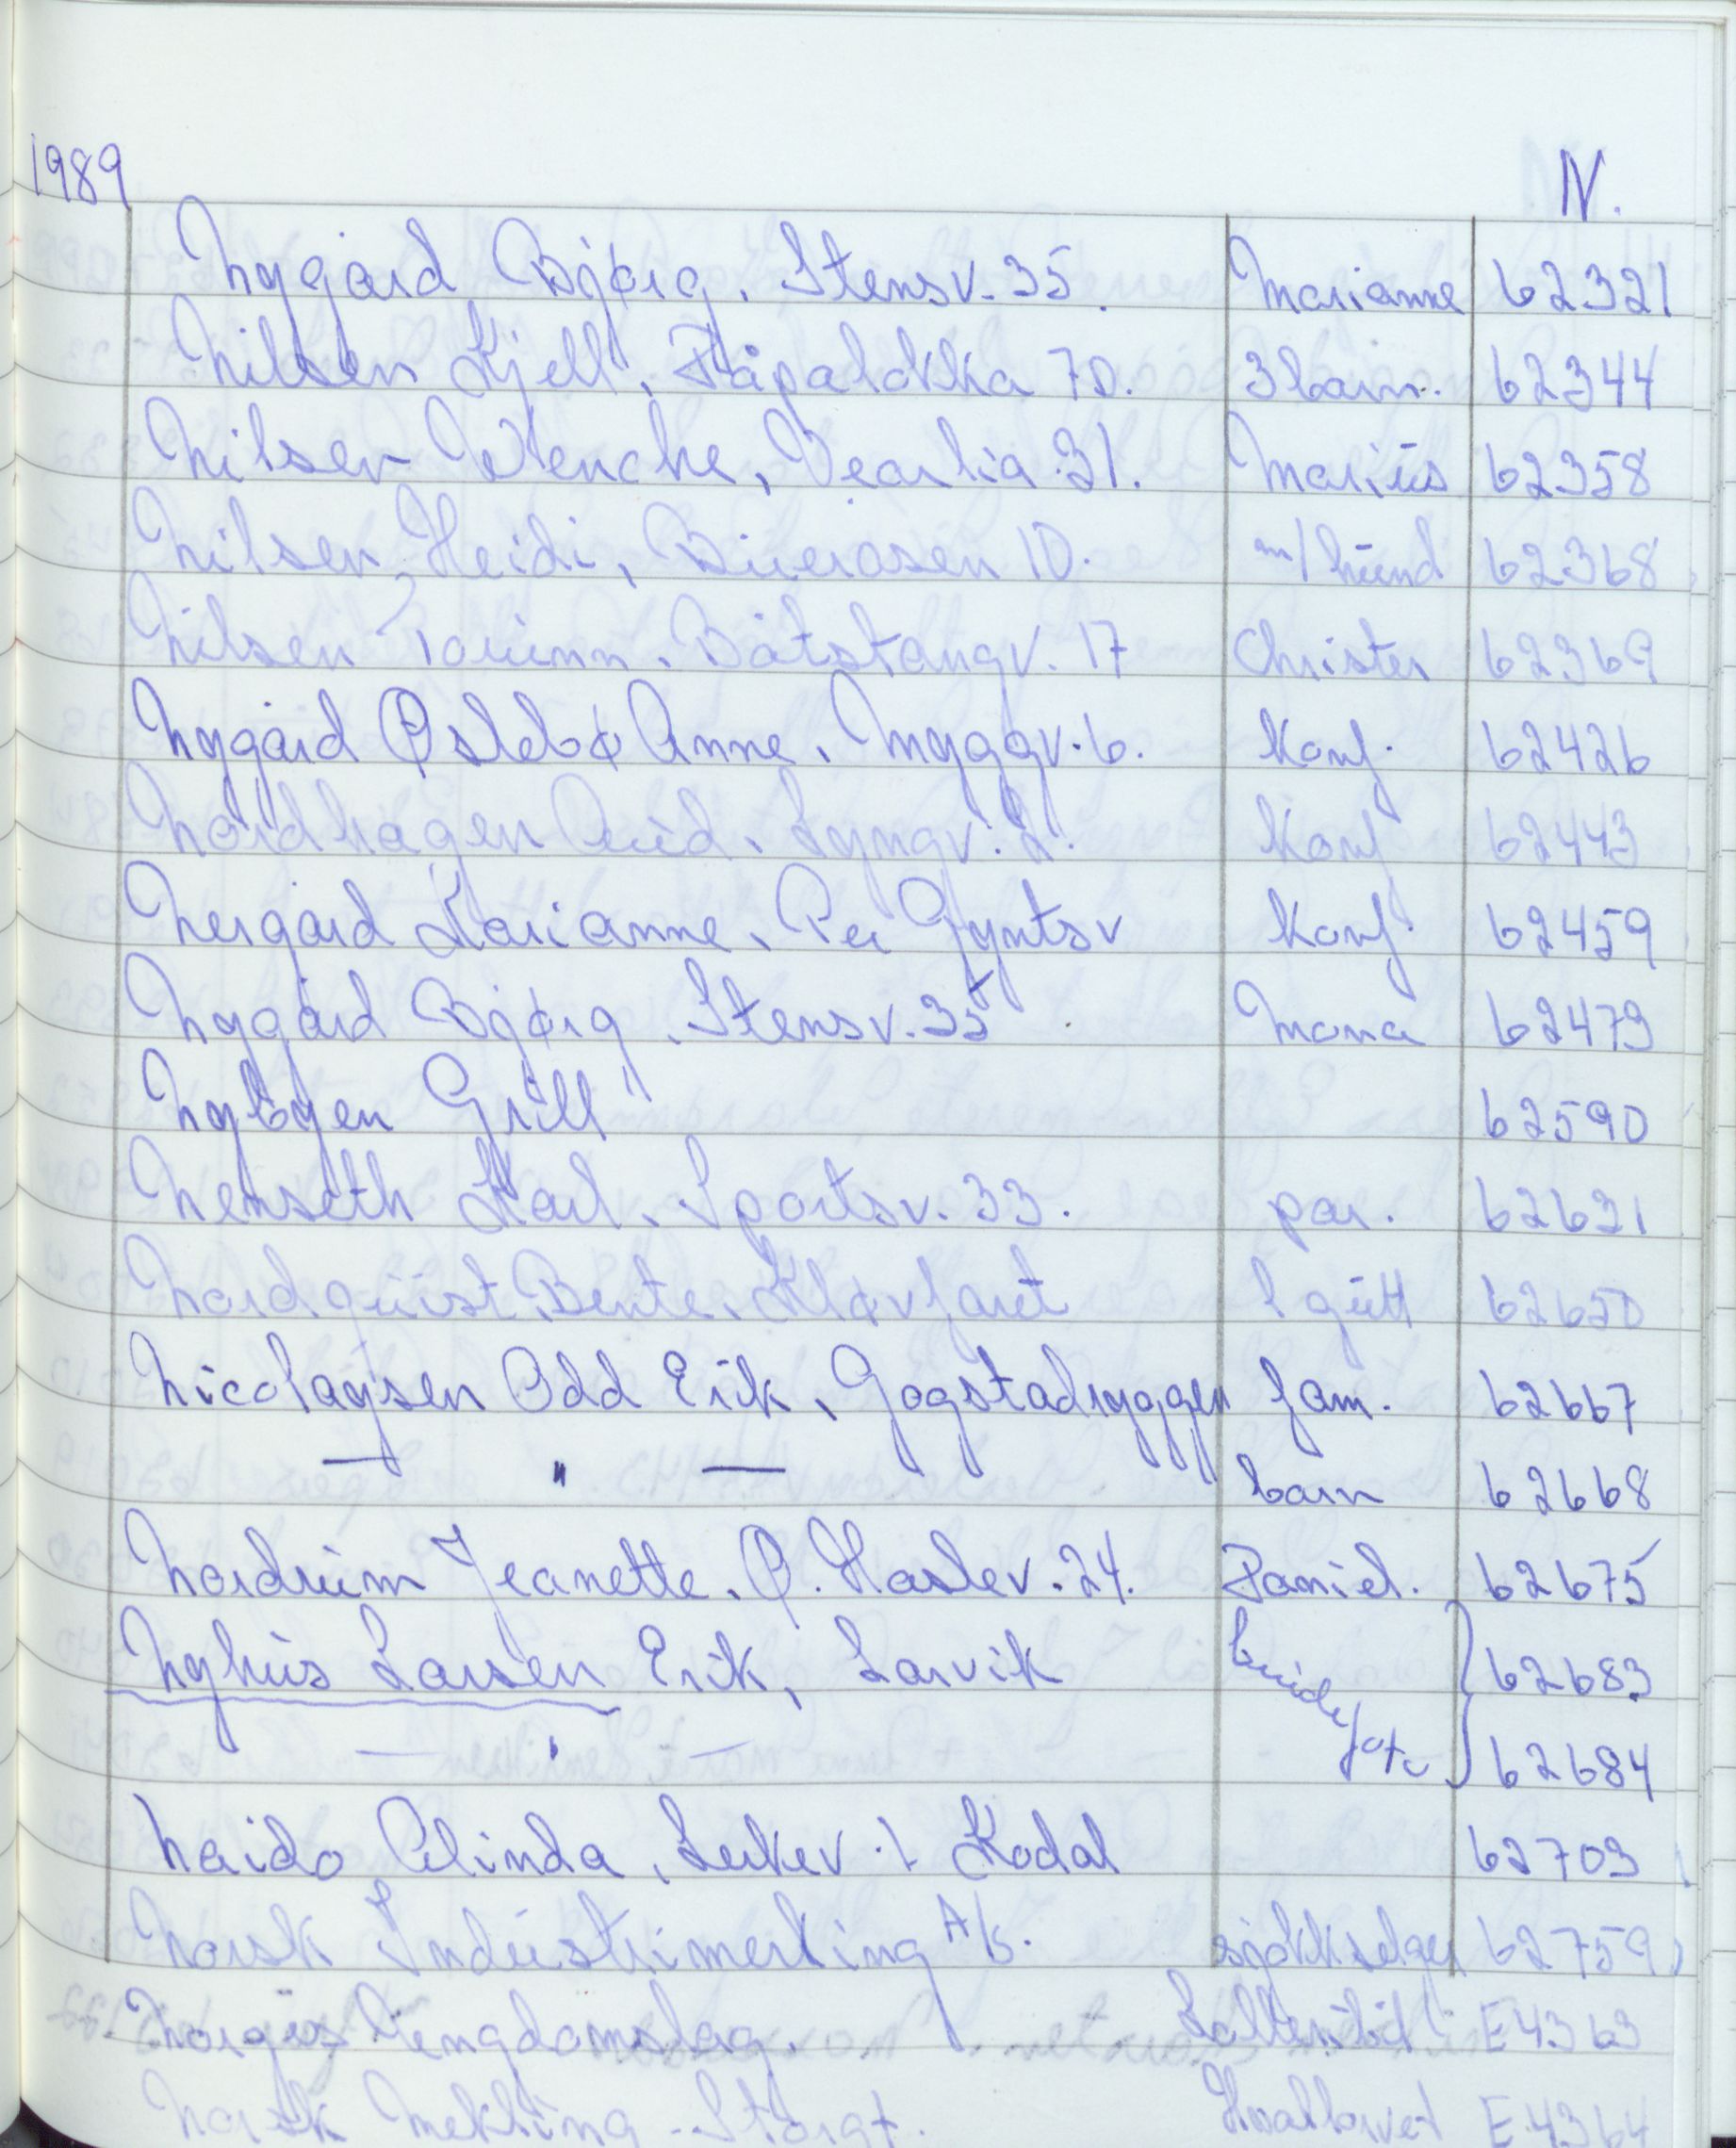 1989 N.
Nygård Bjørg, Stensv. 35. Marianne 62321
Nilsen Kjell, Råpaløkka 70. 3 barn. 62344
Nilsen Wenche, Vearlia 31. Marius 62358
Nilsen, Heidi, Bueråsen 10. m/hund 62368
Nilsen Torunn. Båtstangv. 17 Christer 62369
Nygård Østebø Anne. Myggv. 6. Konf. 62426
Nordhagen Aud. Lyngv. 2. Konf 62443
Nergård Karianne. Per Gyntsv Konf. 62459
Nygård Bjørg. Stensv. 35 Mona 62479
Nybyen Grill 62590
Nenseth Karl. Sportsv. 33. par. 62631
Nordquist Bente. Kløvfaret 1 gutt 62650
Nicolaysen Odd Erik, Gogstadryggen fam. 62667
— " — barn 62668
Nordrum Jeanette. Ø. Haslev. 24. Daniel. 62675
Nyhus Larsen Erik, Larvik brude } 62683
— " — foto 62684
Naido Alinda, Leikev. 1 Kodal 62703
Norsk Industrimerking A/S. 62759
Norges E4363
Norsk Mekling - Storgt. Hvaltorvet E4364